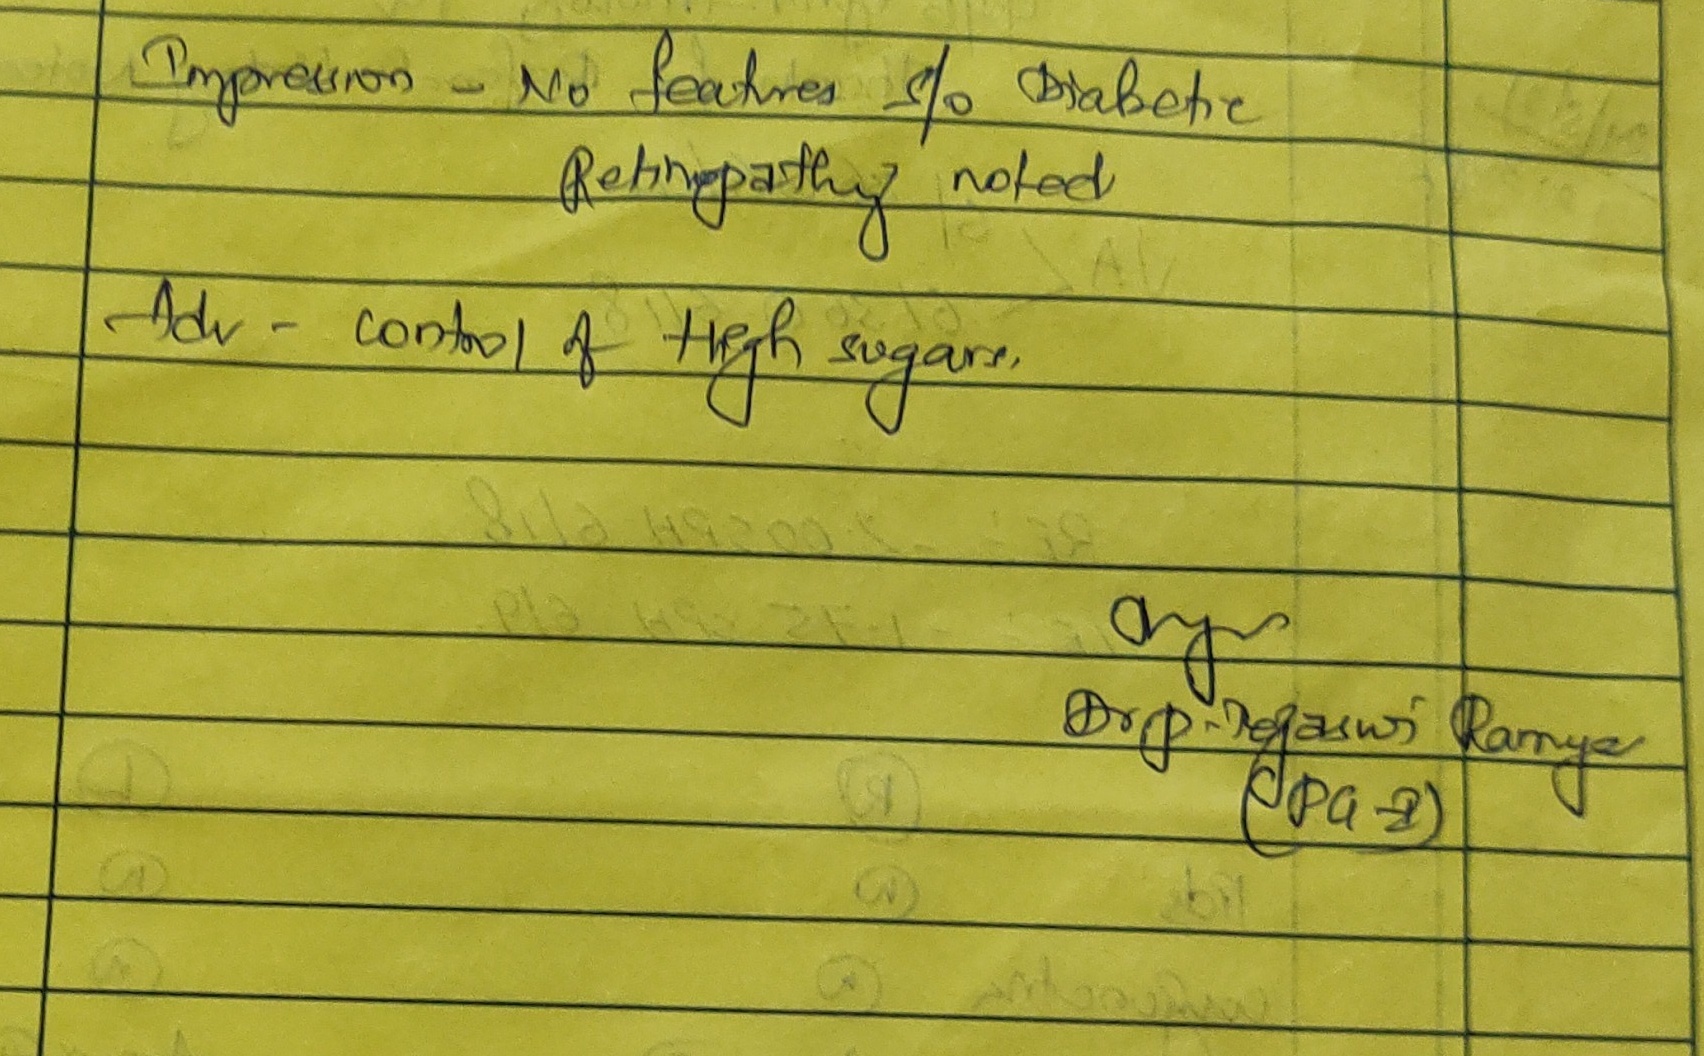 Impression - No features s/o Diabetic
Retinopathy noted
Adv - control of High sugars.
Dr P. Tejaswi Ramya
(PG-2)